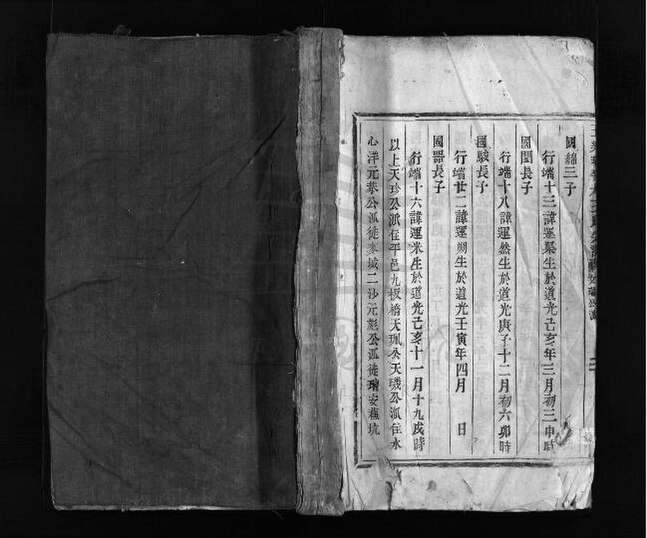 國綿三子
行端十三諱運渠生於道光己亥年三月初三申時
國閨長子
行端十八諱運然生於道光庚子十二月初六卯時
國駿長子
行端廿二諱運 生於道光壬寅年四月 日
國器長子
行端十六諱運米生於道光己亥十一月十九戌時
以上天珍公派住平邑九板橋天珮公天璣公派住水
心洋元泰公派徙 城二沙元彪公派徙瑞安 坑